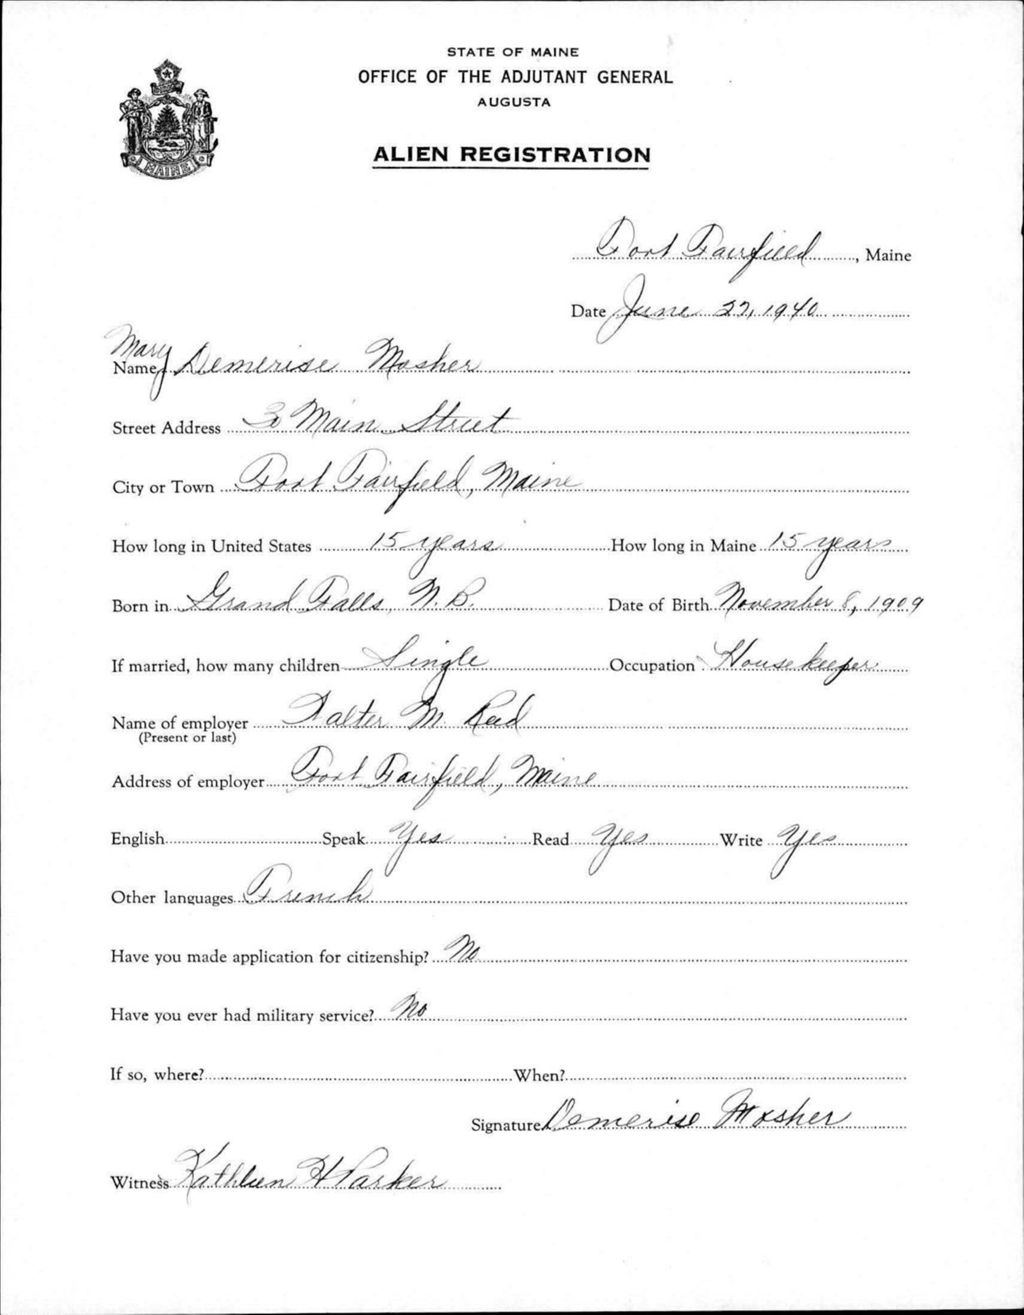 STATE OF MAINE
OFFICE OF THE ADJUTANT GENERAL
AUGUSTA
ALIEN REGISTRATION
MAINE
Fort Fairfield, Maine
Date June 27, 1940
Name Mary Demerise Mosher
Street Address 3 Main Street
City or Town Fort Fairfield, Maine
How long in United States 15 years How long in Maine 15 years
Born in Grand Falls, N.B. Date of Birth November 8, 1909
If married, how many children Single Occupation Housekeeper
Name of employer Walter M Reed
(Present or last)
Address of employer Fort Fairfield, Maine
English Speak Yes Read Yes Write Yes
Other languages French
Have you made application for citizenship? No
Have you ever had military service? No
If so, where? When?
Signature Demerise Mosher
Witness Kathleen H Parker